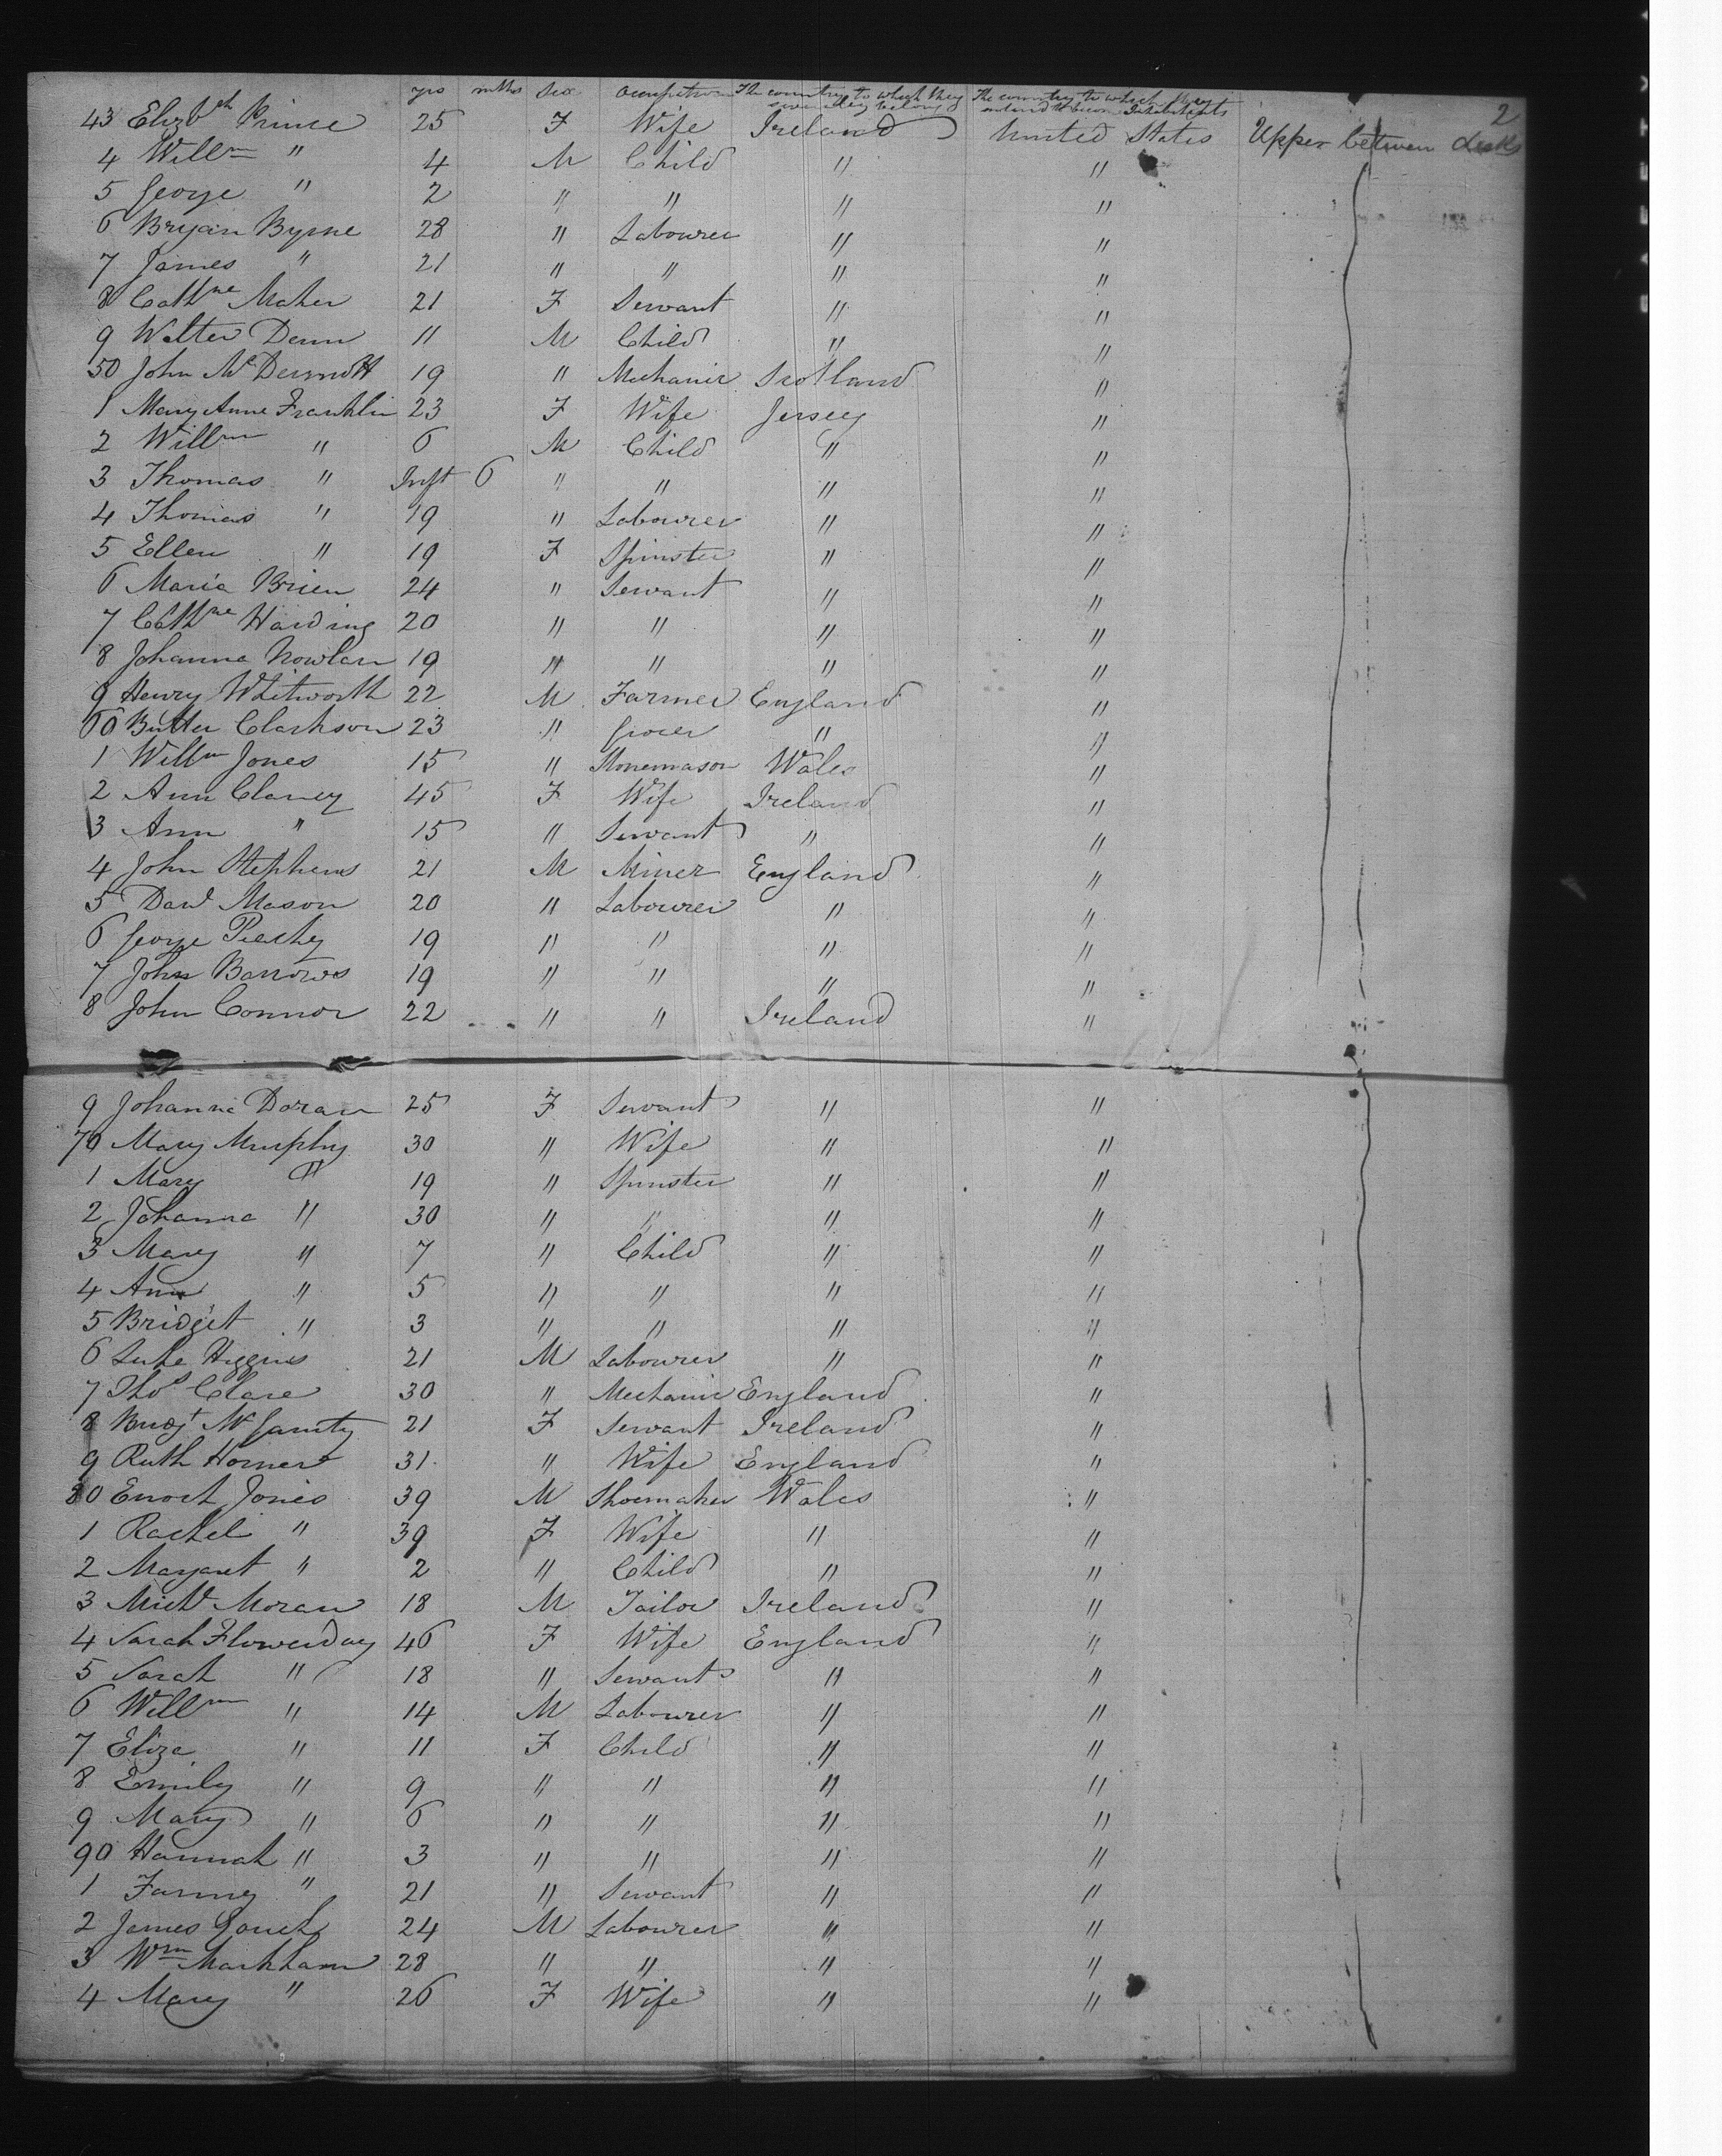 2
yrs mths Sex Occupation The country to which they severally belong The country to which they intend to become Inhabitants
43 Elizbth Prince 25 F Wife Ireland United States Upper between decks
4 Willm " 4 M Child " "
5 George " 2 " " " "
6 Bryan Byrne 28 " Labourer " "
7 James " 21 " " " "
8 Cathne Maher 21 F Servant " "
9 Walter Dunn 11 M Child " "
50 John McDermott 19 " Mechanic Scotland "
1 Mary Anne Franklin 23 F Wife Jersey "
2 Willm " 6 M Child " "
3 Thomas " Inft 6 " " " "
4 Thomas " 19 " Labourer " "
5 Ellen " 19 F Spinster " "
6 Maria Brien 24 " Servant " "
7 Cathne Harding 20 " " " "
8 Johanna Nowlan 19 " " " "
9 Henry Whitworth 22 M Farmer England "
60 Butler Clarkson 23 " Grocer " "
1 Willm Jones 15 " Stonemason Wales "
2 Ann Clancy 45 F Wife Ireland "
3 Ann " 15 " Servant " "
4 John Stephens 21 M Miner England "
5 Davd Mason 20 " Labourer " "
6 George Peachy 19 " " " "
7 John Barrows 19 " " " "
8 John Connor 22 " " Ireland "
9 Johanna Doran 25 F Servant " "
70 Mary Murphy 30 " Wife " "
1 Mary " 19 " Spinster " "
2 Johanna " 30 " " " "
3 Mary " 7 " Child " "
4 Ann " 5 " " " "
5 Bridget " 3 " " " "
6 Luke Higgins 21 M Labourer " "
7 Thos Clare 30 " Mechanic England "
8 Bridgt McGarrity 21 F Servant Ireland "
9 Ruth Horner 31 " Wife England "
80 Enoch Jones 39 M Shoemaker Wales "
1 Rachel " 39 F Wife " "
2 Margaret " 2 " Child " "
3 Michl Moran 18 M Tailor Ireland "
4 Sarah Flowerday 46 F Wife England "
5 Sarah " 18 " Servant " "
6 Willm " 14 M Labourer " "
7 Eliza " 11 F Child " "
8 Emily " 9 " " " "
9 Mary " 6 " " " "
90 Hannah " 3 " " " "
1 Fanny " 21 " Servant " "
2 James 24 M Labourer " "
3 Wm Markham 28 " " " "
4 Mary " 26 F Wife " "